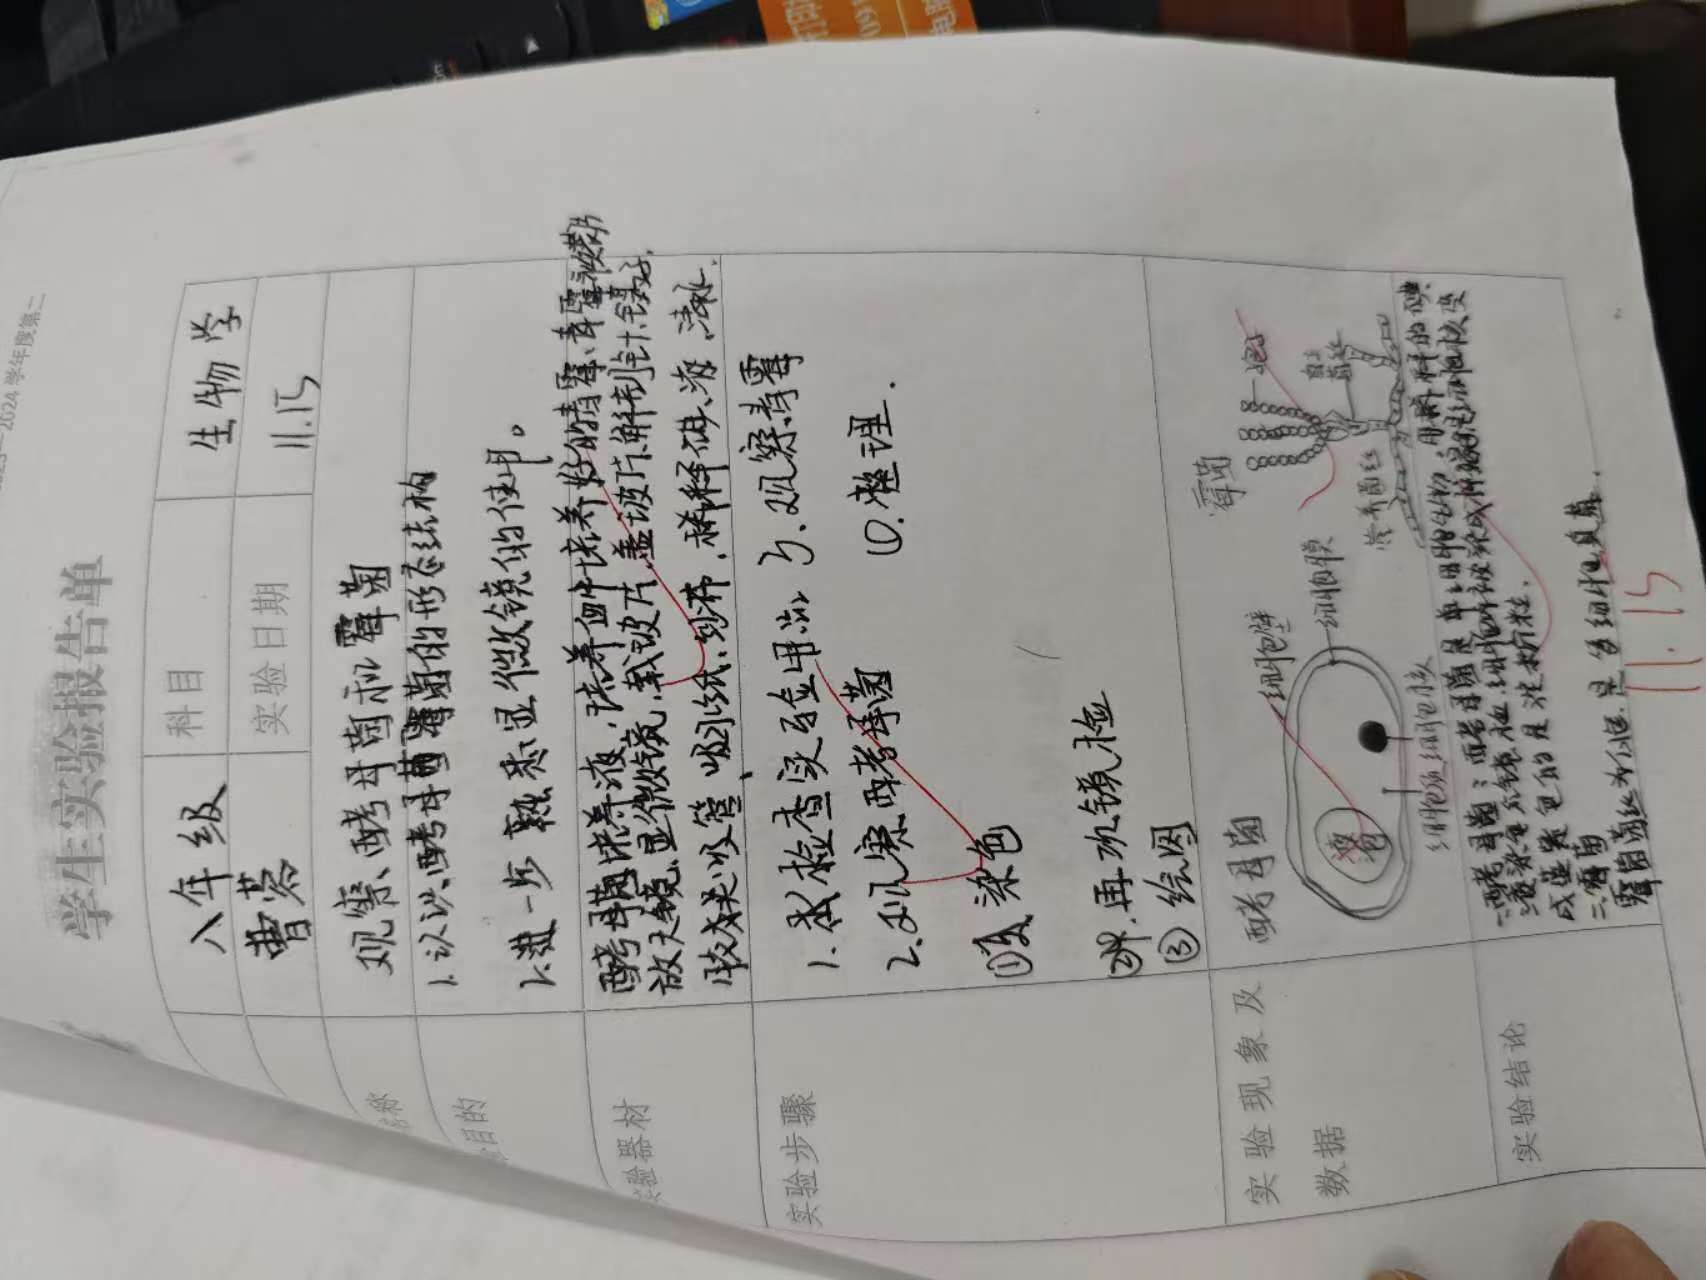 2024学年度第二
学生实验报告单
八年级 科目 生物学
曹蓉 实验日期 11.15
名称 观察酵母菌和霉菌
目的 1.认识酵母菌霉菌的形态结构
2.进一步熟悉显微镜的使用。
实验器材 酵母菌培养液,培养皿中培养好的青霉、青霉
放大镜,显微镜,载玻片,盖玻片,解剖针,镊子,
胶头吸管、吸水纸、纱布,稀释碘液,清水.
实验步骤 1.检查实验用品 3.观察青霉
2.观察酵母菌 ④.整理
①染色
②.再次镜检
③绘图
实验现象及
数据
酵母菌
细胞壁
细胞膜
液泡
细胞质
细胞核
霉菌
孢子
直立菌丝
营养菌丝
实验结论 一.酵母菌:酵母菌是单细胞生物,用稀释的碘
液染色后
成蓝紫色的是淀粉粒.
二.霉菌
霉菌菌丝为
是多细胞真菌.
11.15